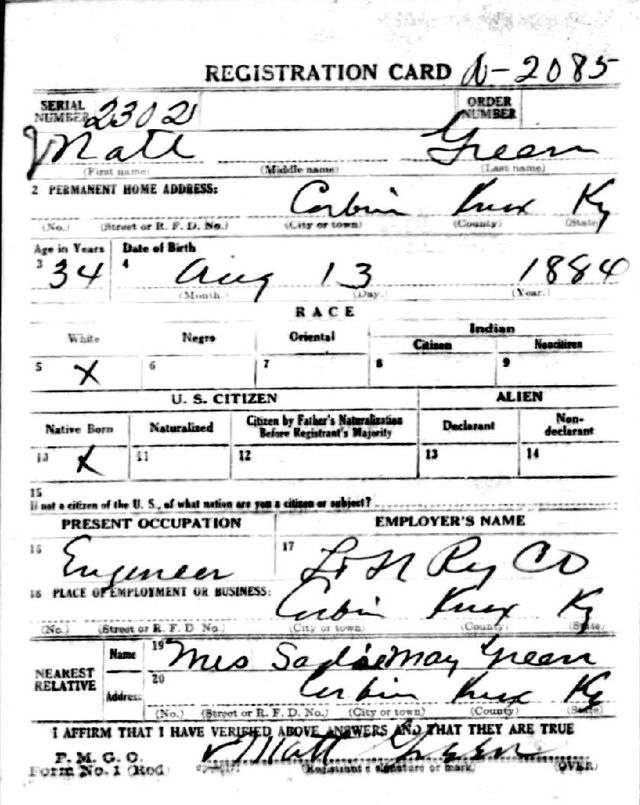 REGISTRATION CARD N-2085
SERIAL NUMBER 2302 ORDER NUMBER
Matt Green
(First name) (Middle name) (Last name)
2 PERMANENT HOME ADDRESS: Corbin Knox Ky
(No.) (Street or R. F. D. No.) (City or town) (County) (State)
Age in Years Date of Birth
3 34 4 Aug 13 1884
(Month.) (Day.) (Year.)
RACE
White Negro Oriental Indian
Citizen Noncitizen
5 X 6 7 8 9
U. S. CITIZEN ALIEN
Native Born Naturalized Citizen by Father's Naturalization Before Registrant's Majority Declarant Non-declarant
10 X 11 12 13 14
15
If not a citizen of the U. S., of what nation are you a citizen or subject?
PRESENT OCCUPATION EMPLOYER'S NAME
16 Engineer 17 L & N Ry Co
18 PLACE OF EMPLOYMENT OR BUSINESS: Corbin Knox Ky
(No.) (Street or R. F. D. No.) (City or town) (County) (State)
NEAREST RELATIVE Name 19 Mrs Sadie May Green
Address 20 Corbin Knox Ky
(No.) (Street or R. F. D. No.) (City or town) (County) (State)
I AFFIRM THAT I HAVE VERIFIED ABOVE ANSWERS AND THAT THEY ARE TRUE
P. M. G. O.
Form No. 1 (Red) Matt Green
(Registrant's signature or mark) (OVER)